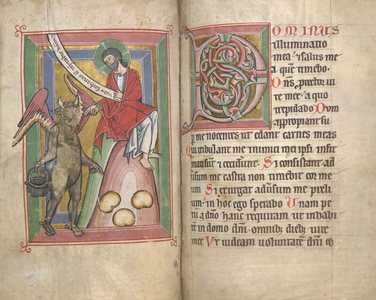 DOMINUS
illuminatio
mea · & salus me
a quem timebo ·
Dns protector ui
te mee · a quo
trepidabo Dum
appropiant su
per me nocentes ut edant carnes meas
Qui tribulant me inimici mei ipsi infir
mati sunt & ceciderunt · Si consistant ad
uersum me castra non timebit cor me
um · Si exurgat aduersum me preli
um · in hoc ego sperabo Unam pe
tii a dno hanc requiram ut inhabi
tem in domo dni · omnibus dieb; uite
mee Ut uideam uoluntatem dni &